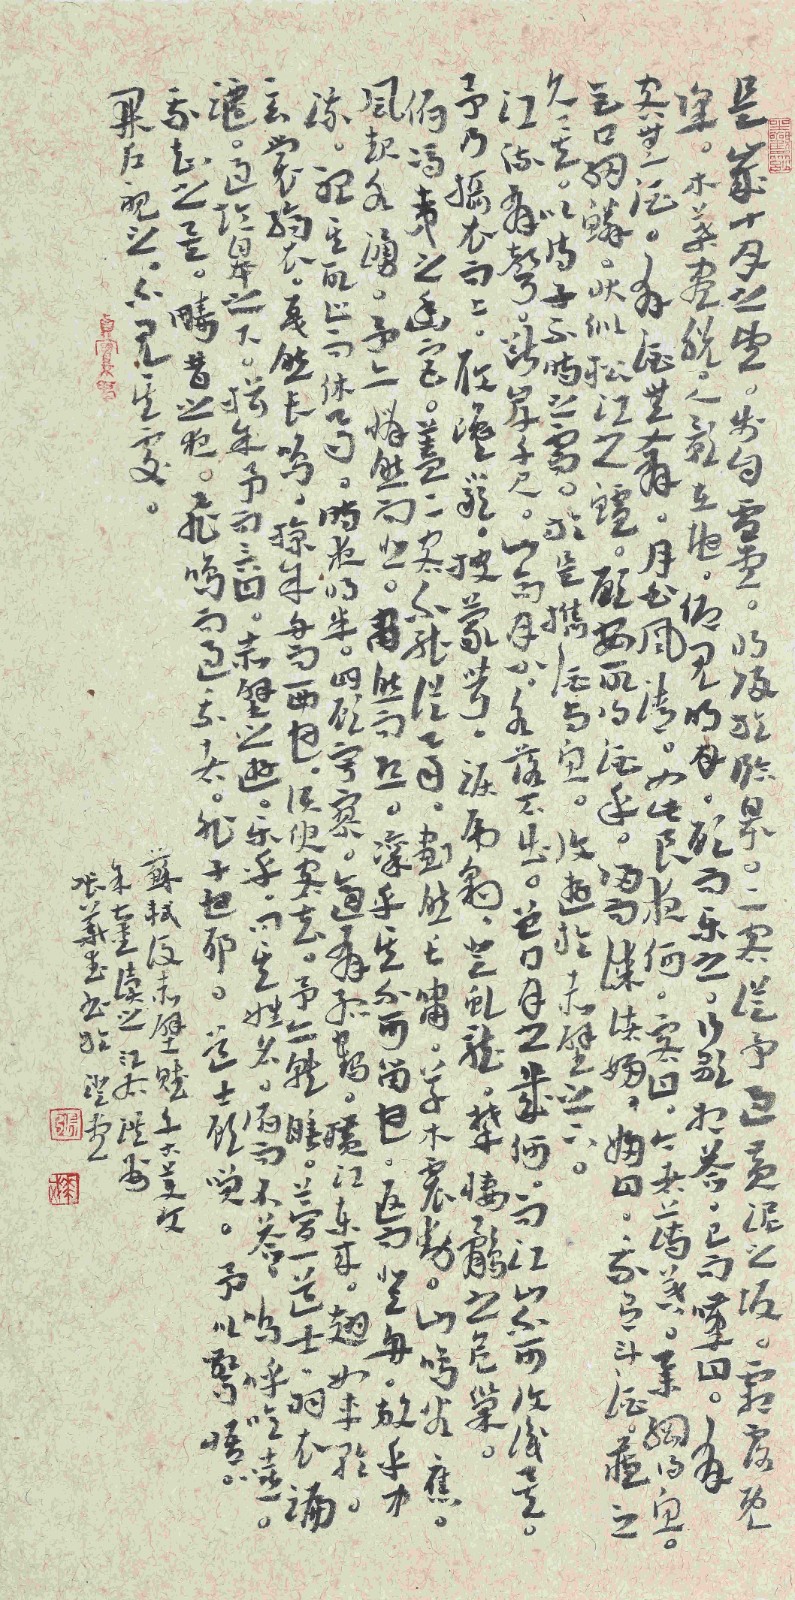 是歲十月之望。步自雪堂。將歸於臨皋。二客從予過黃泥之坂。霜露既
降。木葉盡脫。人影在地。仰見明月。顧而樂之。行歌相答。已而嘆曰。有
客無酒。有酒無肴。月白風清。如此良夜何。客曰。今者薄暮。舉網得魚。
巨口細鱗。狀似松江之鱸。顧安所得酒乎。歸而謀諸婦。婦曰。我有斗酒。藏之
久矣。以待子不時之需。於是攜酒與魚。復遊於赤壁之下。
江流有聲。斷岸千尺。山高月小。水落石出。曾日月之幾何。而江山不可復識矣。
予乃攝衣而上。履巉巖。披蒙茸。踞虎豹。登虬龍。攀棲鶻之危巢。
俯馮夷之幽宮。蓋二客不能從焉。劃然長嘯。草木震動。山鳴谷應。
風起水湧。予亦悄然而悲。肅然而恐。凜乎其不可留也。返而登舟。放乎中
流。聽其所止而休焉。時夜將半。四顧寂寥。適有孤鶴。橫江東來。翅如車輪。
玄裳縞衣。戛然長鳴。掠予舟而西也。須臾客去。予亦就睡。夢一道士。羽衣蹁
躚。過臨皋之下。揖予而言曰。赤壁之遊。樂乎。問其姓名。俯而不答。嗚呼噫嘻。
我知之矣。疇昔之夜。飛鳴而過我者。非子也耶。道士顧笑。予亦驚悟。
開戶視之。不見其處。
蘇軾後赤壁賦